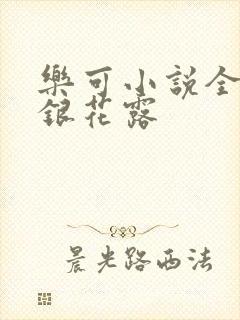 樂可小説全
銀花露
晨光路西法